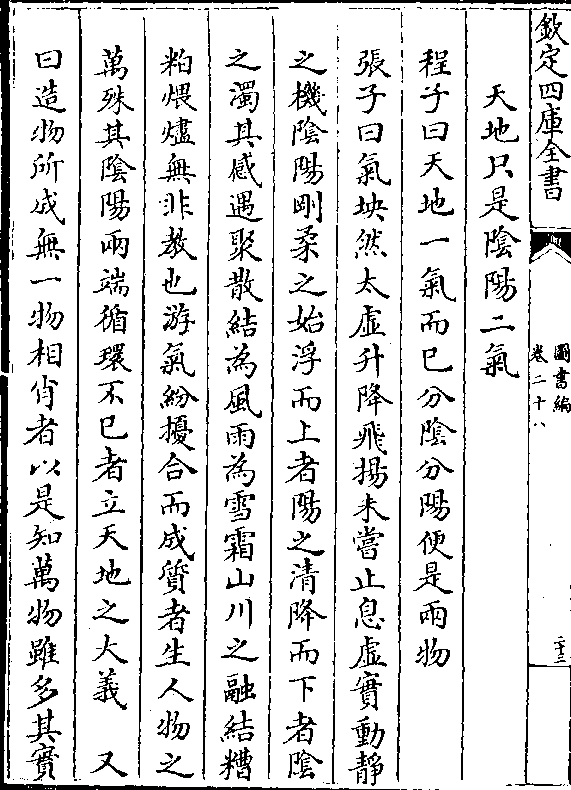 欽定四庫全書
圖書編
卷二十八
二十三
天地只是陰陽二氣
程子曰天地一氣而已分陰分陽便是兩物
張子曰氣坱然太虛升降飛揚未嘗止息虛實動靜
之機陰陽剛柔之始浮而上者陽之清降而下者陰
之濁其感遇聚散結為風雨為雪霜山川之融結糟
粕煨燼無非教也游氣紛擾合而成質者生人物之
萬殊其陰陽兩端循環不已者立天地之大義　又
曰造物所成無一物相肖者以是知萬物雖多其實